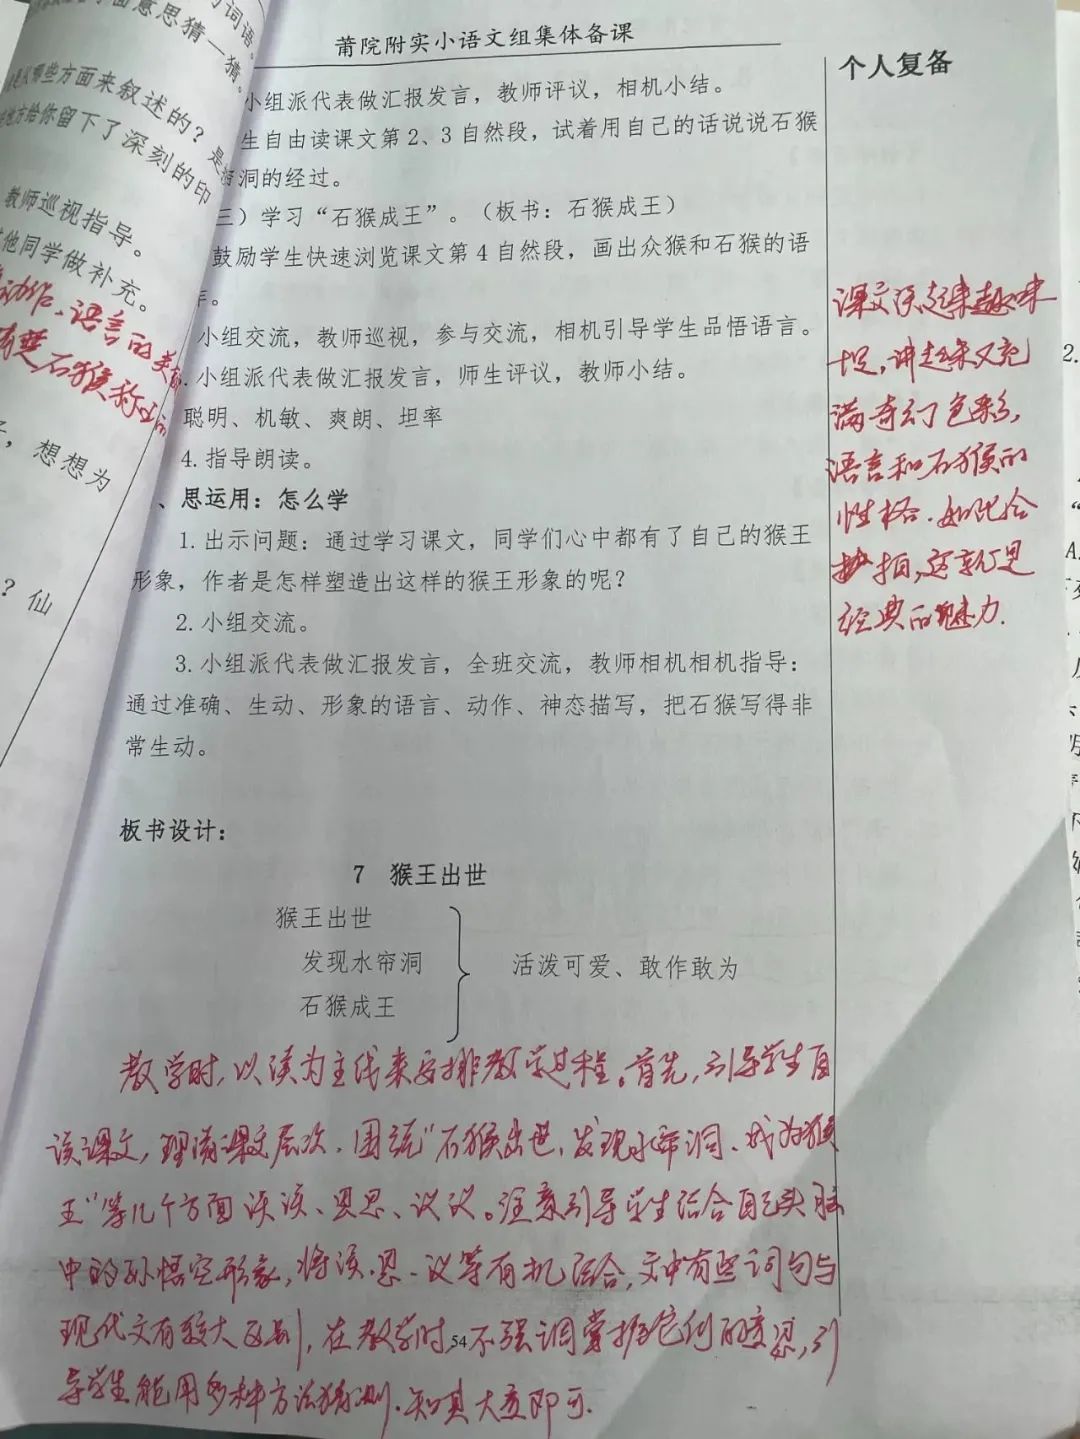 词语。
面意思猜一猜。
些方面来叙述的？是
地方给你留下了深刻的印
教师巡视指导。
他同学做补充。
动作、语言的美
石猴称王
想想为
？仙
莆院附实小语文组集体备课
个人复备
小组派代表做汇报发言，教师评议，相机小结。
生自由读课文第2、3自然段，试着用自己的话说说石猴
洞的经过。
三）学习“石猴成王”。（板书：石猴成王）
鼓励学生快速浏览课文第4自然段，画出众猴和石猴的语
小组交流，教师巡视，参与交流，相机引导学生品悟语言。
小组派代表做汇报发言，师生评议，教师小结。
聪明、机敏、爽朗、坦率
4.指导朗读。
、思运用：怎么学
1.出示问题：通过学习课文，同学们心中都有了自己的猴王
形象，作者是怎样塑造出这样的猴王形象的呢？
2.小组交流。
3.小组派代表做汇报发言，全班交流，教师相机相机指导：
通过准确、生动、形象的语言、动作、神态描写，把石猴写得非
常生动。
课文读起来趣味
十足，讲起来又充
满奇幻色彩，
语言和石猴的
性格．如此合
拍，这就是
经典的魅力．
板书设计：
7 猴王出世
猴王出世
发现水帘洞
石猴成王
活泼可爱、敢作敢为
教学时，以读为主线来安排教学过程。首先，引导学生自
读课文，理清课文层次．围绕“石猴出世、发现水帘洞、成为猴
王”等几个方面读读、思思、议议。注意引导学生结合自己头脑
中的孙悟空形象，将读．思．议等有机结合，文中有些词句与
现代文有较大区别，在教学时不强调掌握它们的意思，引
导学生能用多种方法猜测．知其大意即可．
54
2.